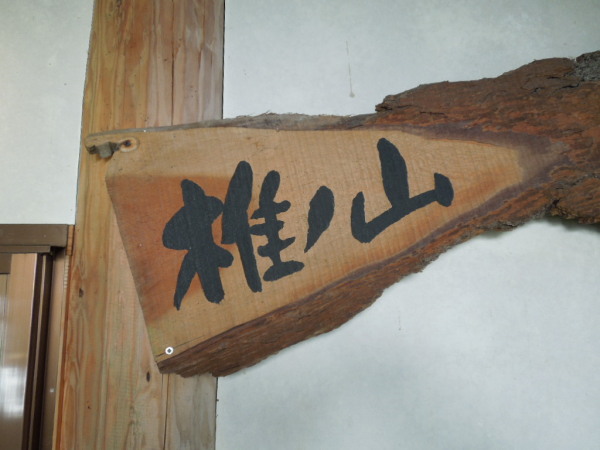 椎ノ山